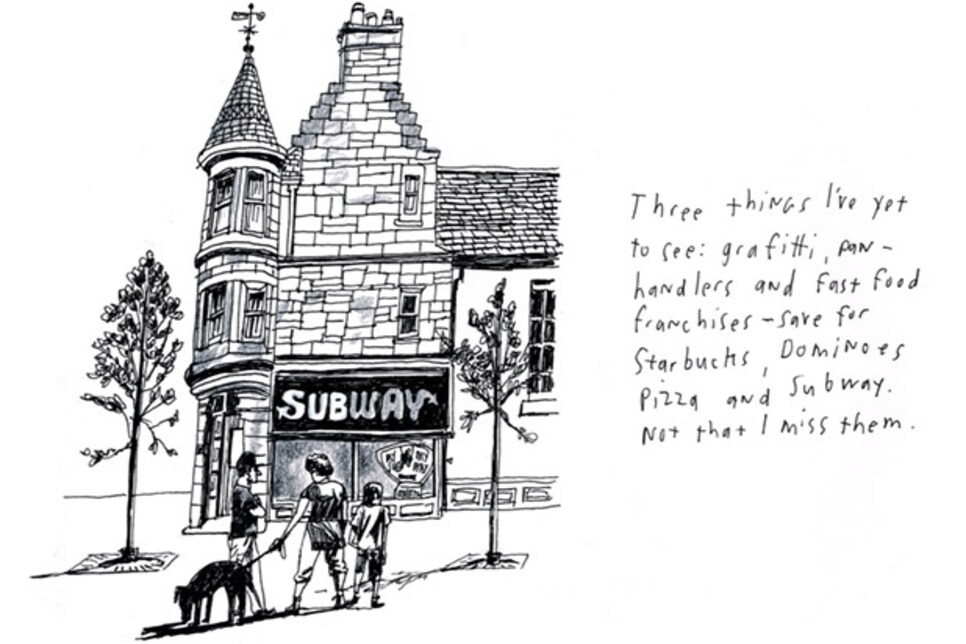 SUBWAY
Three things I've yet
to see: grafitti, pan-
handlers and fast food
franchises – save for
Starbucks, Dominoes
Pizza and Subway.
Not that I miss them.